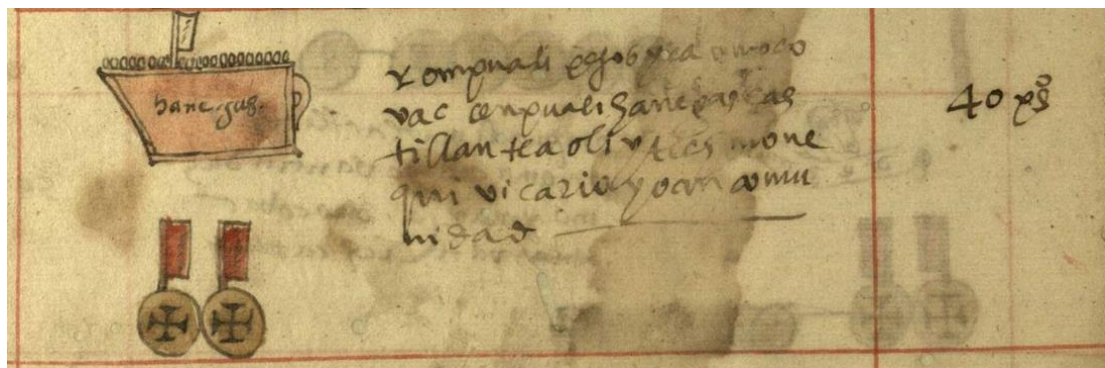 hanegas.
yompuali pesos yca omoco
vac cenpuali hanegas cas
tillan tlaoli yties mone
qui vicario yoan comu
nidad
40 pºs